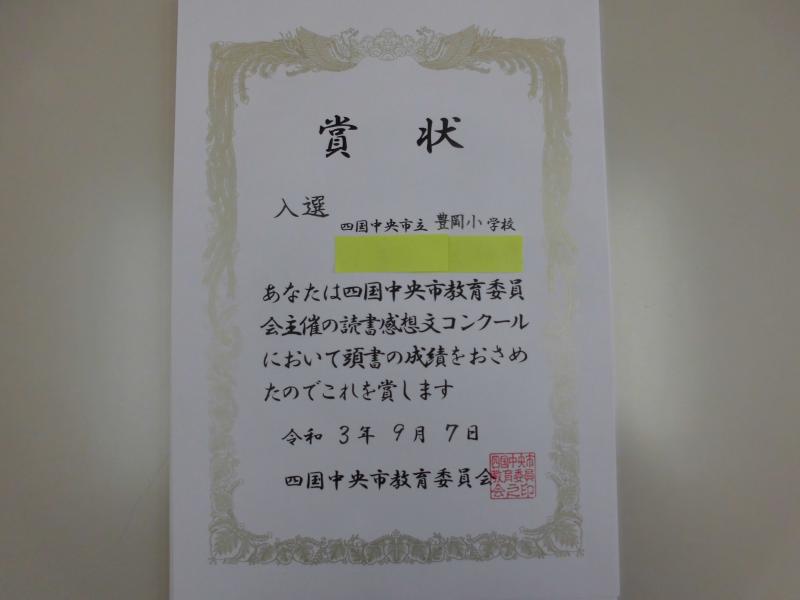 賞状
入選
四国中央市立 豊岡小学校
あなたは四国中央市教育委員
会主催の読書感想文コンクール
において頭書の成績をおさめ
たのでこれを賞します
令和 3年 9月 7日
四国中央市教育委員会
四国中央市
教育委員
会之印